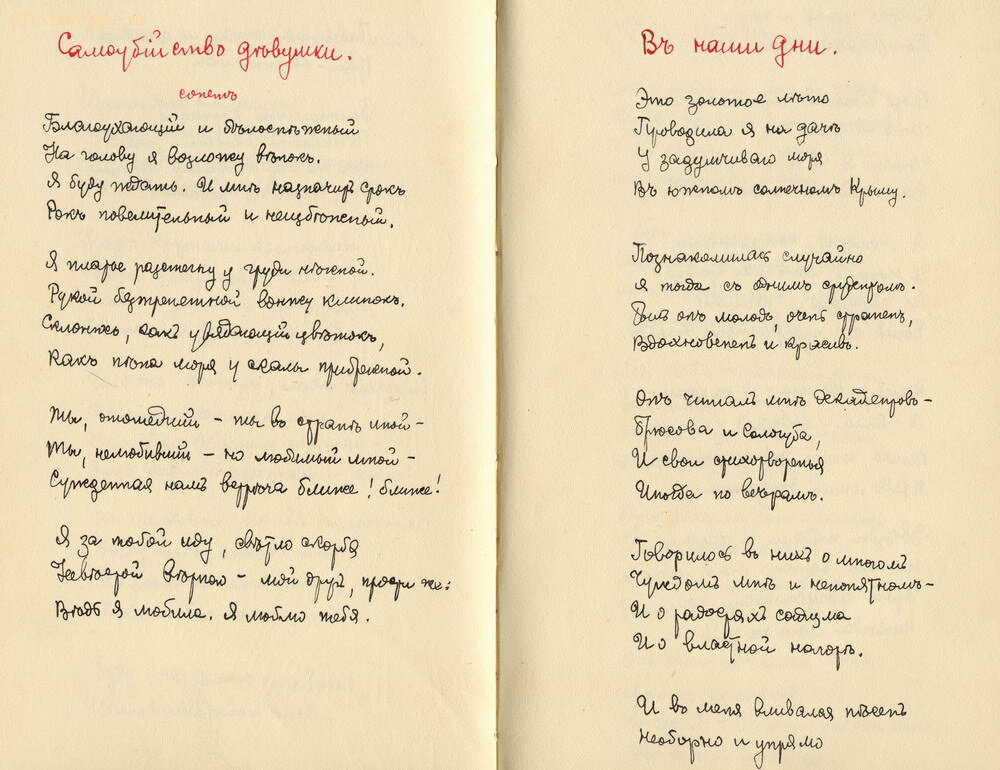 Самоубійство дѣвушки.
сонетъ
Благоухающій и бѣлоснѣжный
На голову я возложу вѣнокъ.
Я буду ждать. И мнѣ назначитъ срокъ
Рокъ повелительный и неизбѣжный.
Я платье разстегну у груди нѣжной.
Рукой безтрепетной вонжу клинокъ.
Склонюсь, какъ увядающій цвѣтокъ,
Какъ пѣна моря у скалы прибрежной.
Ты, отошедшій – ты во странѣ иной –
Ты, нелюбившій – но любимый мной –
Сужденная намъ встрѣча ближе! ближе!
Я за тобой иду, свѣтло скорбя
Невѣстой вѣрною – мой другъ, прости же:
Вѣдь я любила. Я люблю тебя.
Въ наши дни.
Это золотое лѣто
Проводила я на дачѣ
У задумчиваго моря
Въ южномъ солнечномъ Крыму.
Познакомилась случайно
Я тогда съ однимъ студентомъ.
Былъ онъ молодъ, очень страненъ,
Вдохновененъ и красивъ.
Онъ читалъ мнѣ декадентовъ –
Брюсова и Сологуба,
И свои стихотворенья
Иногда по вечерамъ.
Говорилось въ нихъ о многомъ
Чуждомъ мнѣ и непонятномъ –
И о радостяхъ садизма
И о властной наготѣ.
И во меня вливался плѣнъ
Необорно и упрямо